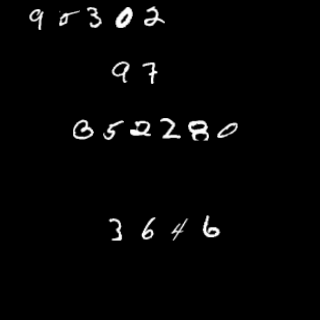 95302
97
352280
3646